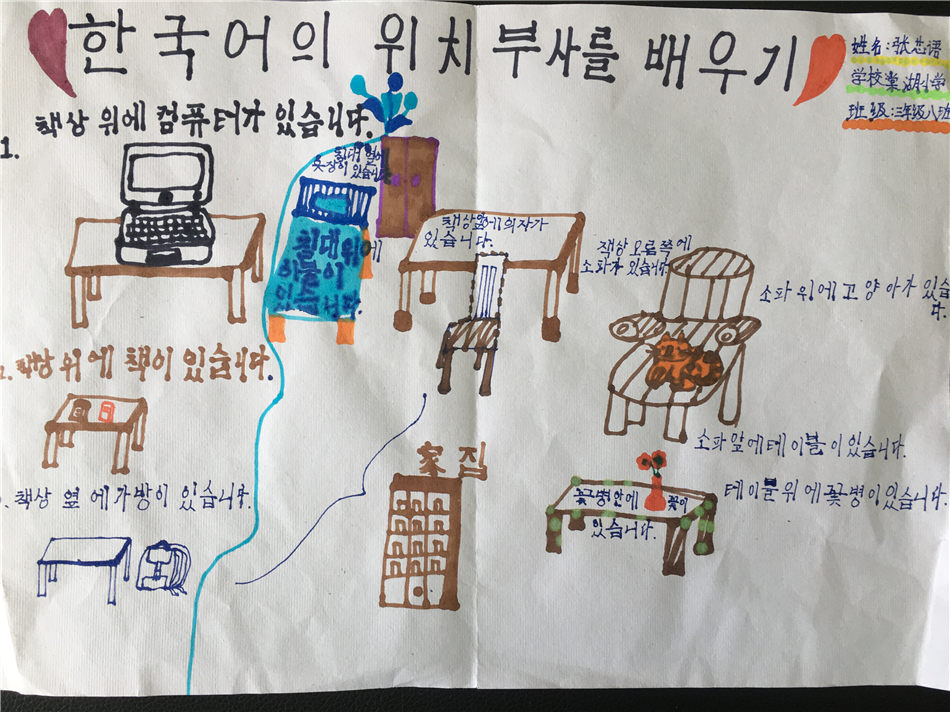 한국어의 위치 부사를 배우기
姓名:张芯语
学校棠湖小学
班级:三年级八班
1. 책상 위에 컴퓨터가 있습니다.
침대 옆에
옷장이 있습니다
침대 위에
이불이
있습니다.
책상옆에의자가
있습니다.
책상 오름쪽에
소파가 있습니다.
소파 위에 고양아가 있습
다.
2. 책상 위에 책이 있습니다.
책상 옆에 가방이 있습니다.
家 집
소파 앞에 테이블이 있습니다.
테이블 위에 꽃병이 있습니다.
꽃병안에 꽃이
있습니다.